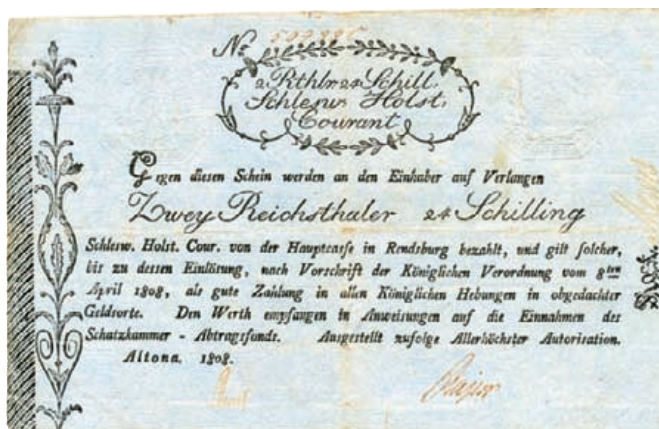 No
2 Rthlr 24 Schill.
Schlesw. Holst.
Courant
Gegen diesen Schein werden an den Einhaber auf Verlangen
Zwey Reichsthaler 24 Schilling
Schlesw. Holst. Cour. von der Hauptcasse in Rendsburg bezahlt, und gilt solcher,
bis zu dessen Einlösung, nach Vorschrift der Königlichen Verordnung vom 8ten
April 1808, als gute Zahlung in allen Königlichen Hebungen in obgedachter
Geldsorte. Den Werth empfangen in Anweisungen auf die Einnahmen des
Schatzkammer-Abtragsfonds. Ausgestellt zufolge Allerhöchster Autorisation.
Altona. 1808.